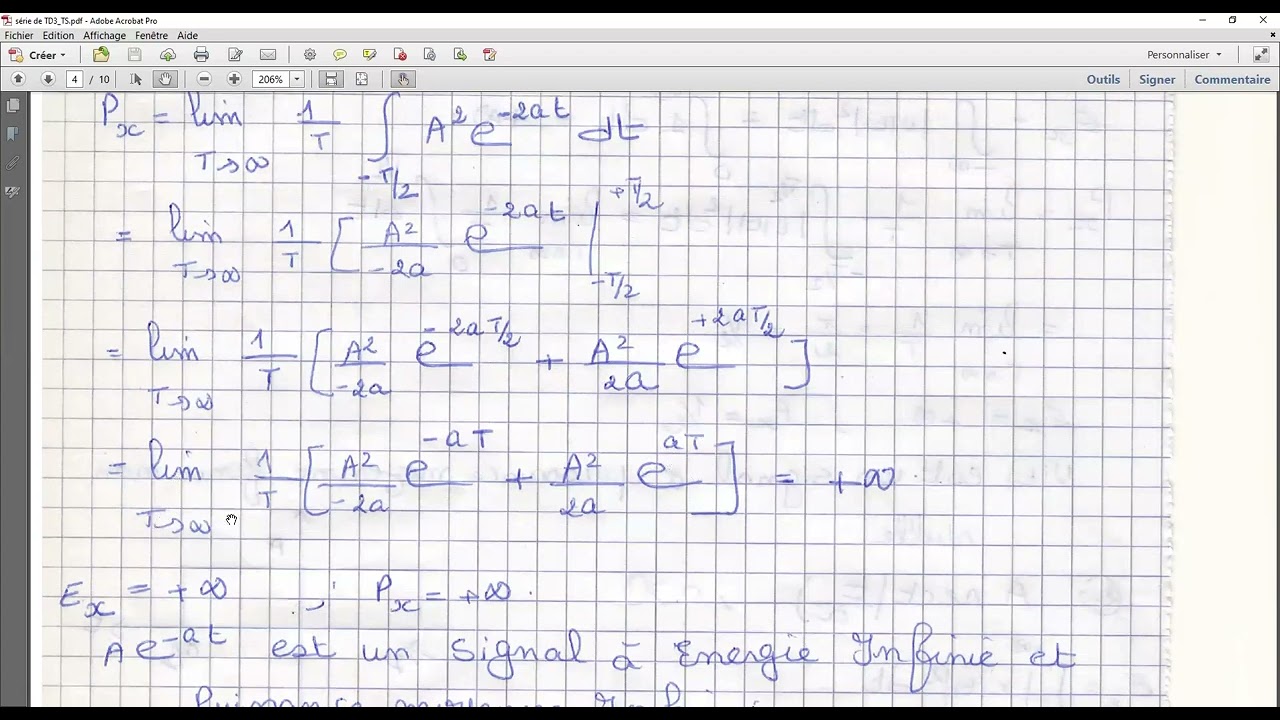 série de TD3_TS.pdf - Adobe Acrobat Pro
Fichier Edition Affichage Fenêtre Aide
Créer Personnaliser
4 / 10 206% Outils Signer Commentaire
Px = lim T→∞ 1/T ∫ -T/2 A² e^-2at dt
= lim T→∞ 1/T [ A²/-2a e^-2at | +T/2 -T/2
= lim T→∞ 1/T [ A²/-2a e^-2aT/2 + A²/2a e^+2aT/2 ]
= lim T→∞ 1/T [ A²/-2a e^-aT + A²/2a e^aT ] = +∞
Ex = +∞ ; Px = +∞.
A e^-at est un signal à Energie Infinie et